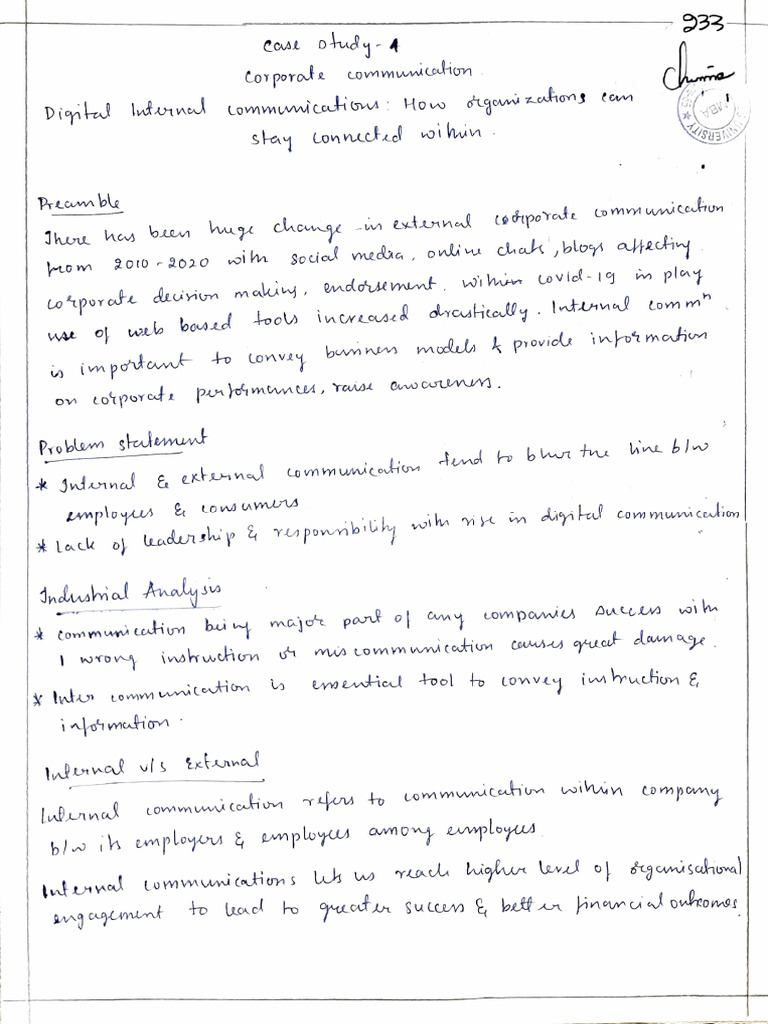 233
Case study-1
Corporate communication
Digital Internal communications: How organizations can
stay connected within.
UNIVERSITY
MBA
Preamble
There has been huge change in external corporate communication
from 2010-2020 with social media, online chats, blogs affecting
corporate decision making, endorsement. within covid-19 in play
use of web based tools increased drastically. Internal commⁿ
is important to convey business models & provide information
on corporate performances, raise awareness.
Problem statement
* Internal & external communication tend to blur the line b/w
employees & consumers
* Lack of leadership & responsibility with rise in digital communication
Industrial Analysis
* communication being major part of any companies success with
1 wrong instruction or miscommunication causes great damage.
* Inter communication is essential tool to convey instruction &
information.
Internal v/s External
Internal communication refers to communication within company
b/w its employers & employees among employees
Internal communications lets us reach higher level of organisational
engagement to lead to greater success & better financial outcomes.